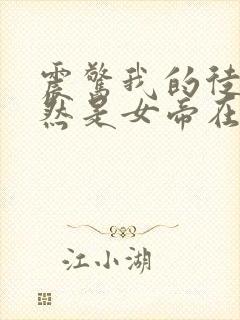 震惊我的徒
然是女帝在
江小湖